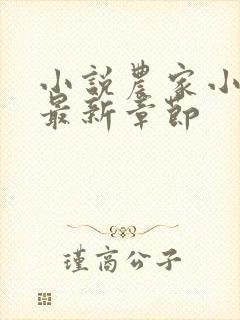 小説農家小
最新章節
瑾高公子